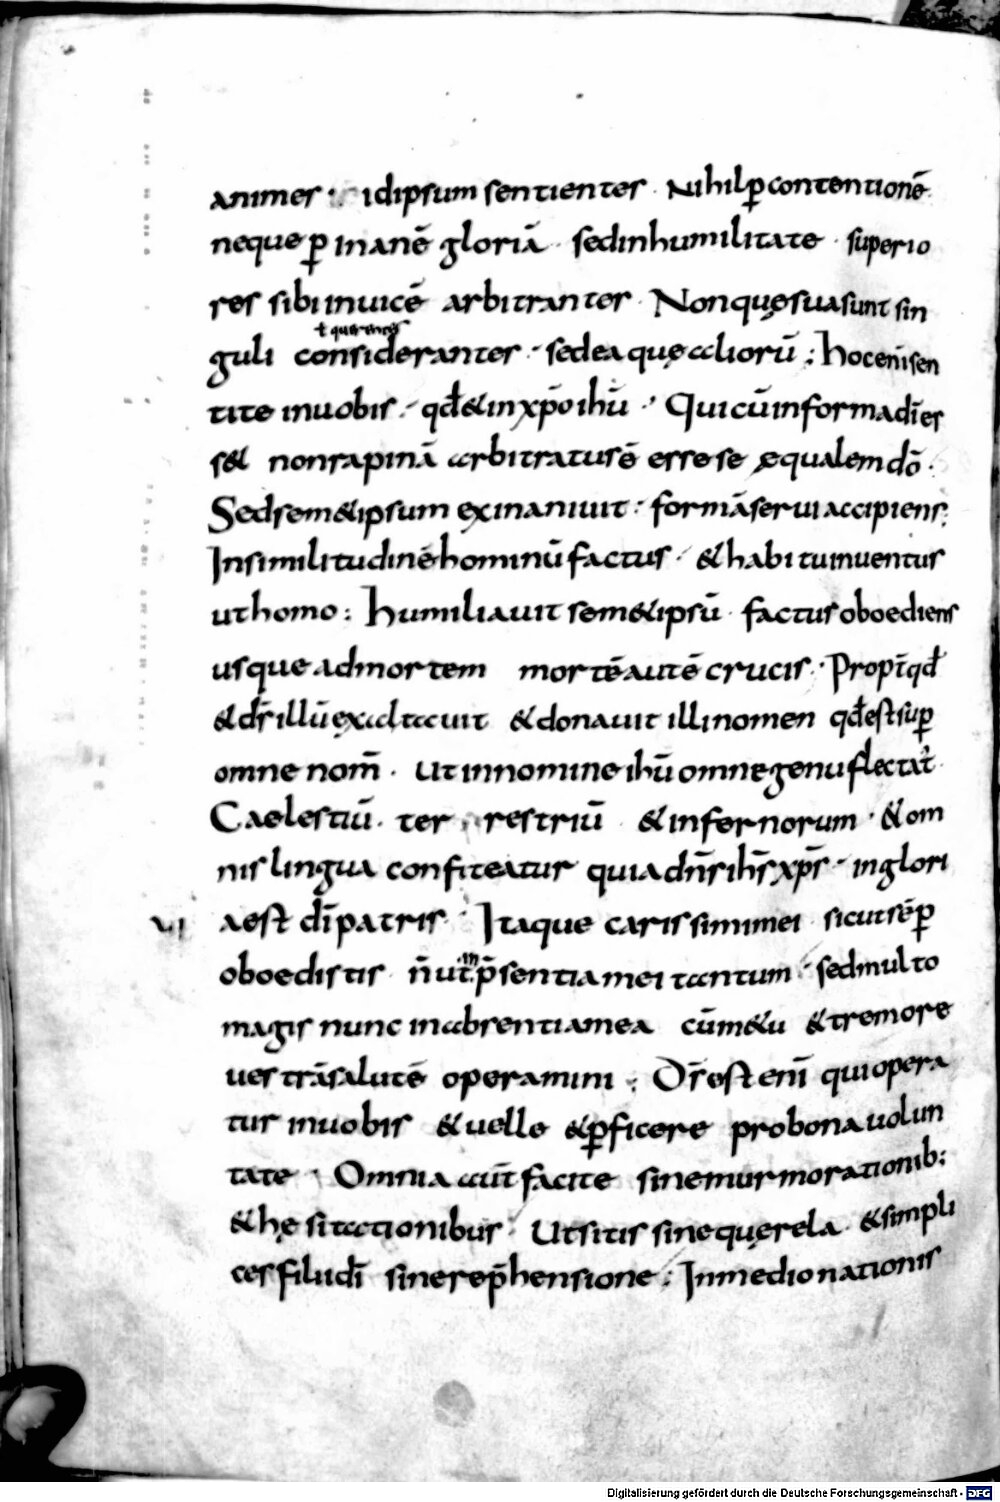 animes · idipsum sentientes · Nihil ꝑ contentionē
neque ꝑ inanē gloriā · sed in humilitate · superio
res sibi inuicē arbitrantes · Non quę sua sunt sin
ł querentes
guli considerantes · sed ea quę aliorū : hoc enī sen
tite in uobis · qđ & in xp̄o ihū · Qui cū in forma dī es
s& non rapinā arbitratus ē esse se ęqualem dō ·
Sed sem&ipsum exinaniuit : formā serui accipiens ·
In similitudinē hominū factus · & habitu inuentus
ut homo : humiliauit sem&ipsū · factus oboediens
usque ad mortem mortē autē crucis · Propt̄ qđ
& ds̄ illū exaltauit & donauit illi nomen qđ est suꝑ
omne nom̄ · ut in nomine ihū omne genu flectat̄
Caelestiū · ter restriū & infernorum · & om
nis lingua confiteatur quia dn̄s ihs̄ xp̄s · in glori
VI
a est dī patris · Itaque carissimi mei sicut sēꝑ
oboedistis n̄ ut in p̄sentia mei tantum · sed multo
magis nunc in absentia mea cū m&u & tremore
uestrā salutē operamini · Ds̄ est enī qui opera
tur in uobis & uelle & ꝑficere pro bona uolun
tate · Omnia aut̄ facite sine murmorationib:
& hęsitationibus · Ut sitis sine quęrela & simpli
ces filii dī sine rep̄hensione : In medio nationis
Digitalisierung gefördert durch die Deutsche Forschungsgemeinschaft - DFG